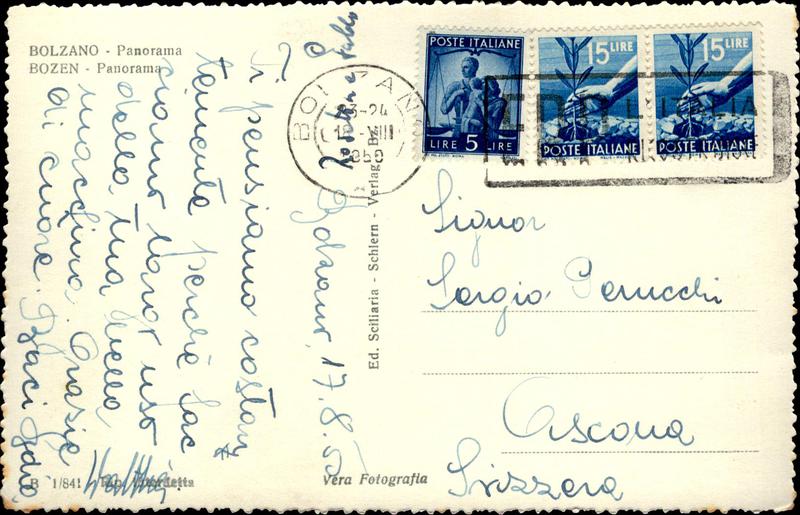 BOLZANO - Panorama
BOZEN - Panorama
Bolzano, 17.8.50
Ti pensiamo costan
temente perchè fac
ciamo buon uso
della tua bella
macchina. Grazie
di cuore. Baci
B 1/841
Vera Fotografia
Ed. Sciliaria - Schlern - Verlag - Bz.
POSTE ITALIANE
LIRE 5 LIRE
15 LIRE
POSTE ITALIANE
15 LIRE
POSTE ITALIANE
BOLZANO
23-24
VIII
1950
ERP
L'ITALIA
Signor
Sergio Perucchi
Ascona
Svizzera